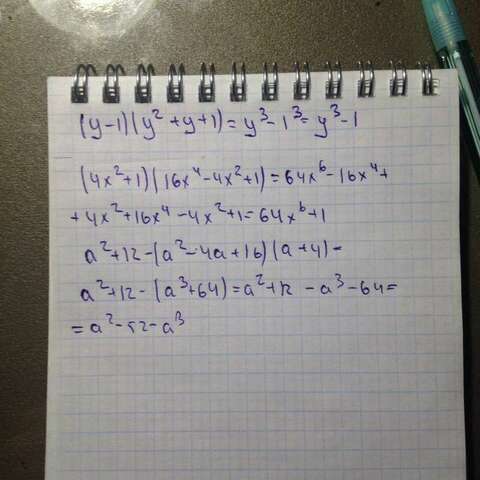 (y-1)(y²+y+1)=y³-1³=y³-1
(4x²+1)(16x⁴-4x²+1)=64x⁶-16x⁴+
+4x²+16x⁴-4x²+1=64x⁶+1
a²+12-(a²-4a+16)(a+4)-
a²+12-(a³+64)=a²+12-a³-64=
=a²-52-a³